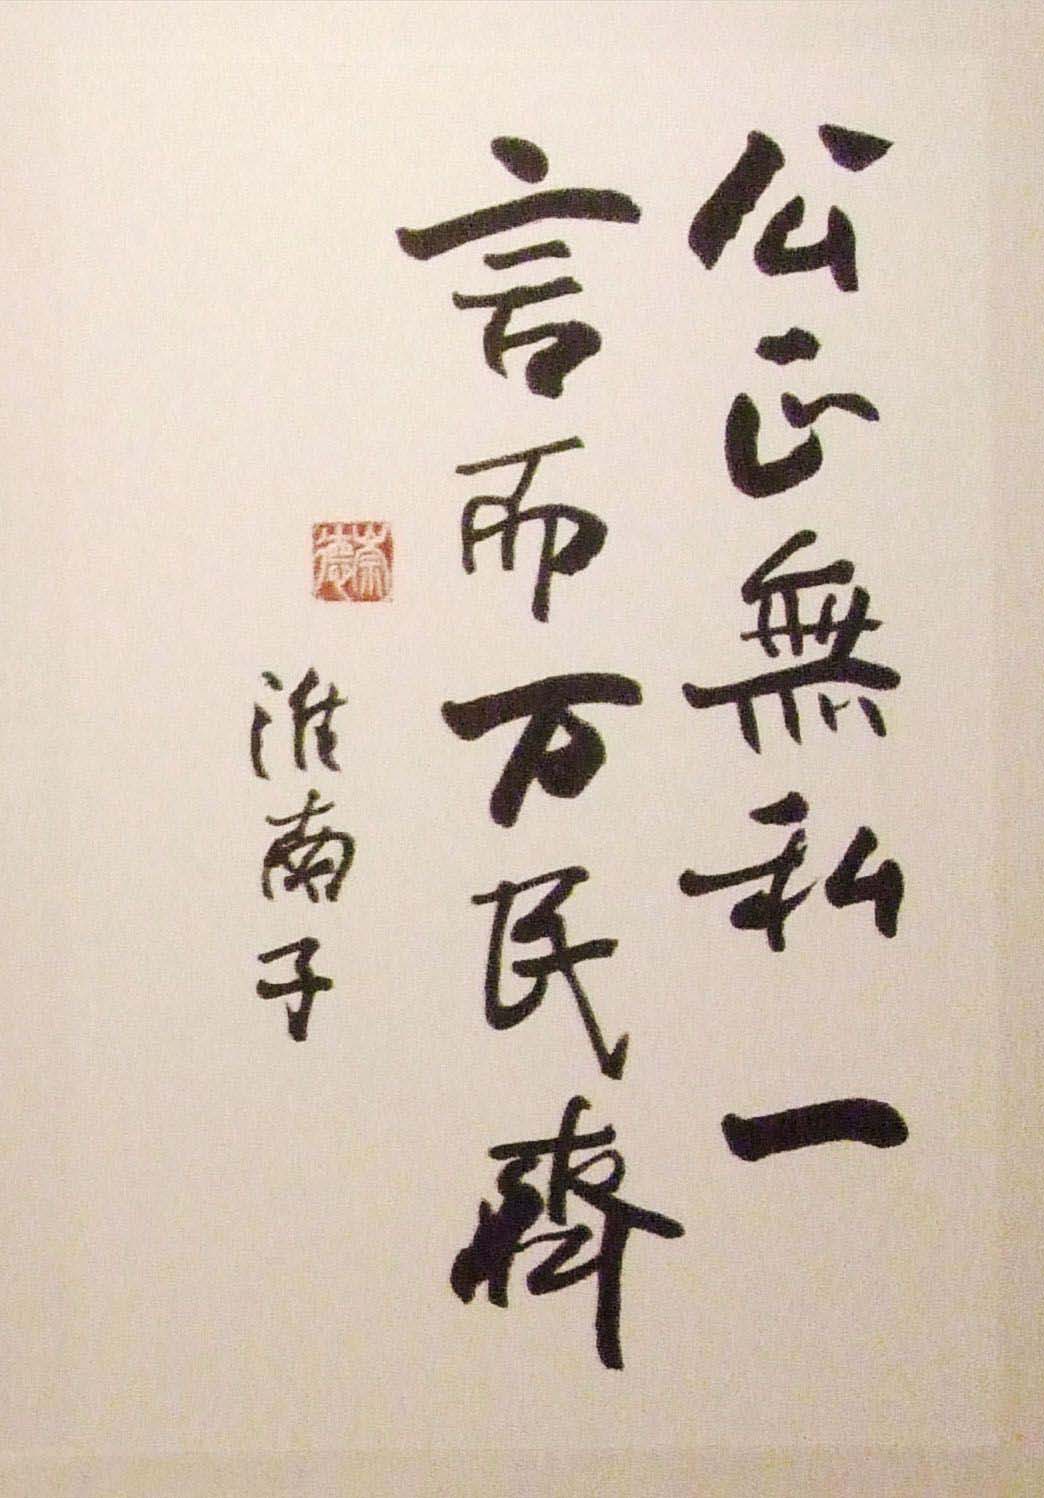 公正無私一
言而万民齊
淮南子
崇德